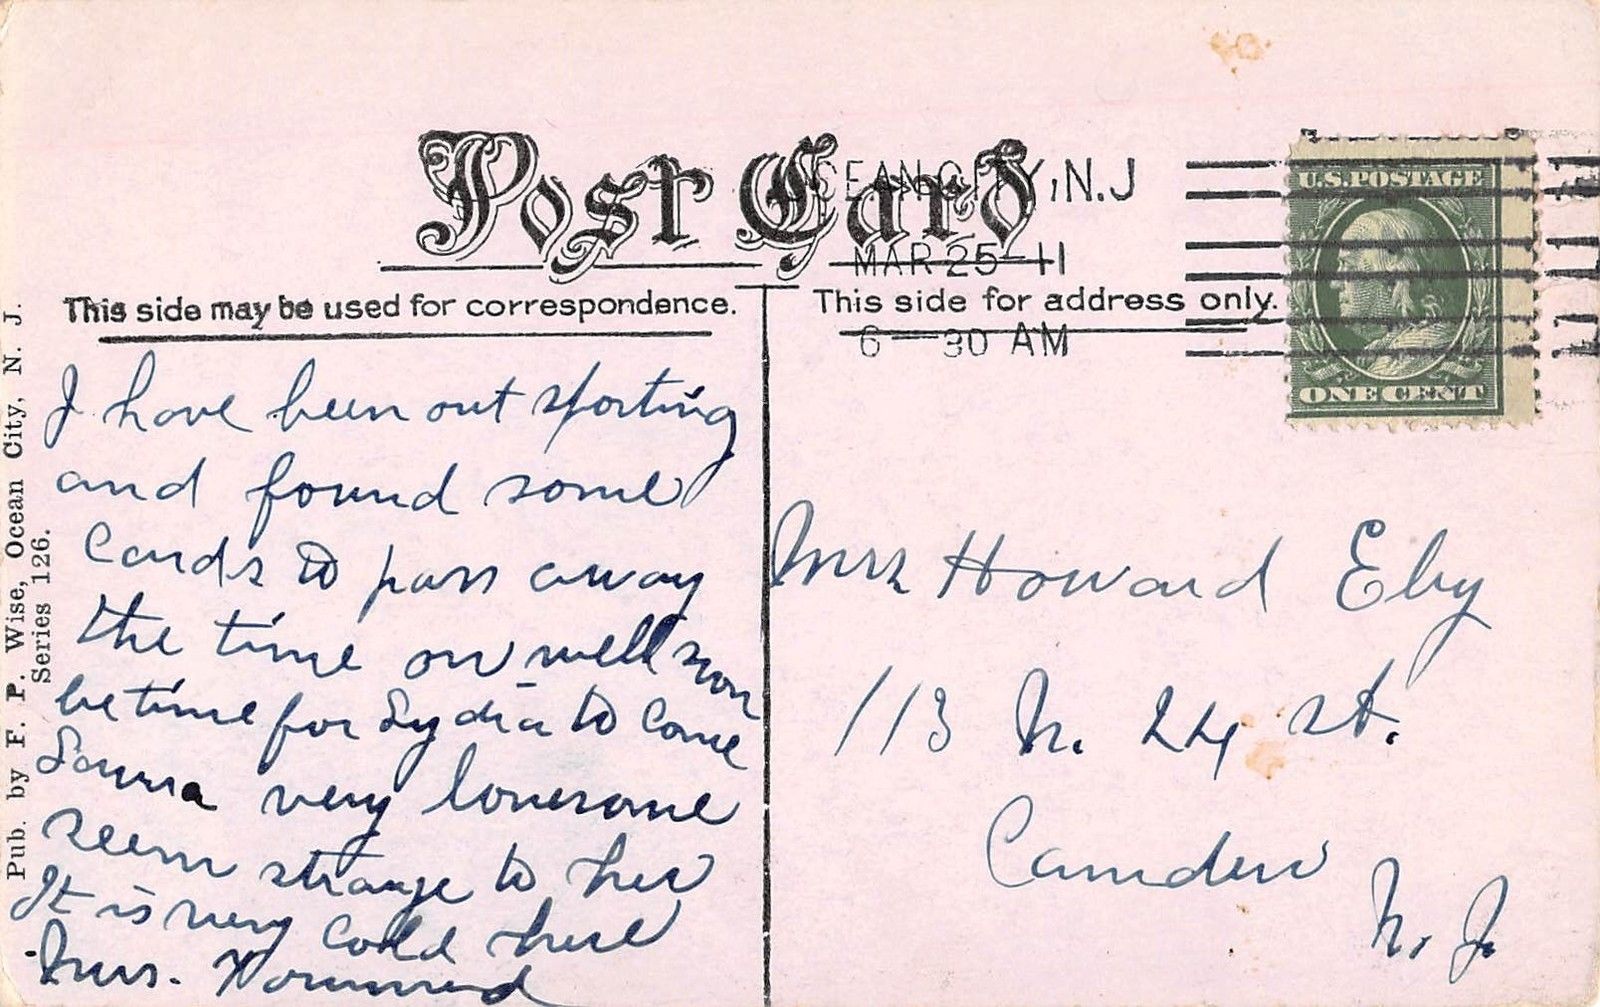 Post Card
OCEAN CITY, N.J
MAR 25 - 11
6 - 30 AM
U.S. POSTAGE
ONE CENT
This side may be used for correspondence.
This side for address only.
Pub. by F. P. Wise, Ocean City, N. J.
Series 126.
I have been out sporting
and found some
Cards to pass away
the time on well soon
be time for Lydia to Come
very lonesome
seem strange to her
It is very Cold here
Mrs.
Mrs Howard Eby
113 N. 24 st.
Camden
N. J.